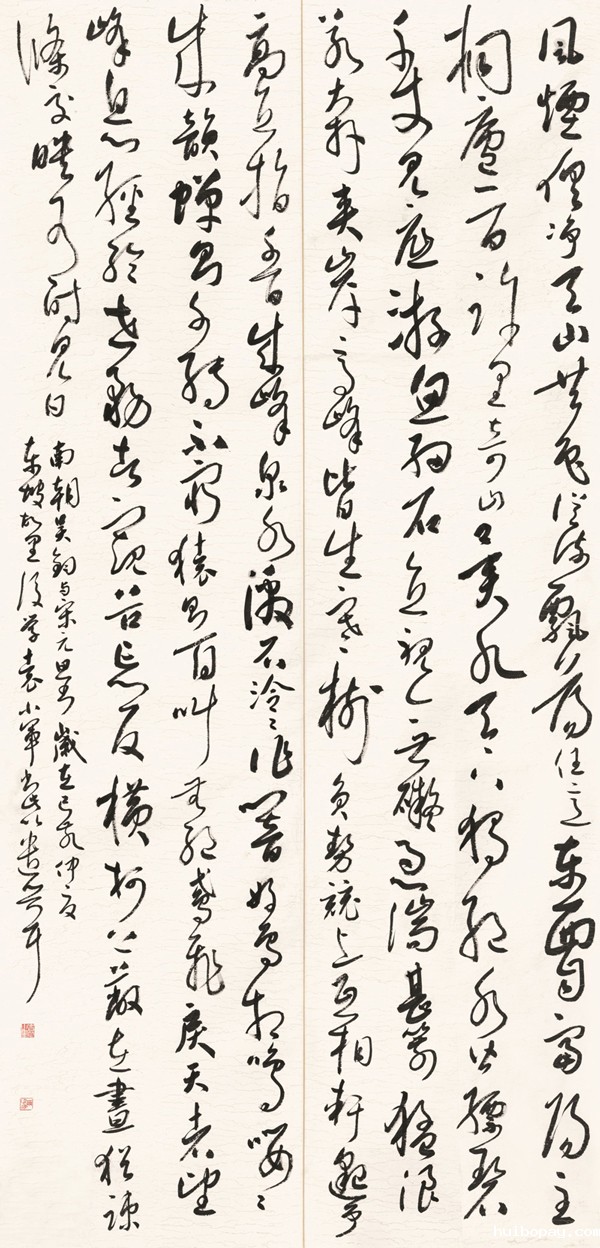 風煙俱净天山共色從流飄蕩任意东西自富陽至
桐廬一百許里奇山異水天下獨絕水皆縹碧
千丈見底游魚細石直視無礙急湍甚箭猛浪
若奔夾岸高峰皆生寒樹負勢競上互相軒邈爭
高直指千百成峰泉水激石泠泠作響好鳥相鳴嚶嚶
成韻蟬則千轉不窮猿則百叫無絕鳶飛戾天者望
峰息心經綸世務者窺谷忘反橫柯上蔽在晝猶疎
條交映有時見日
南朝吴鈞与宋元思書歲在己亥仲夏
东坡故里後学袁小軍書此以遣興耳